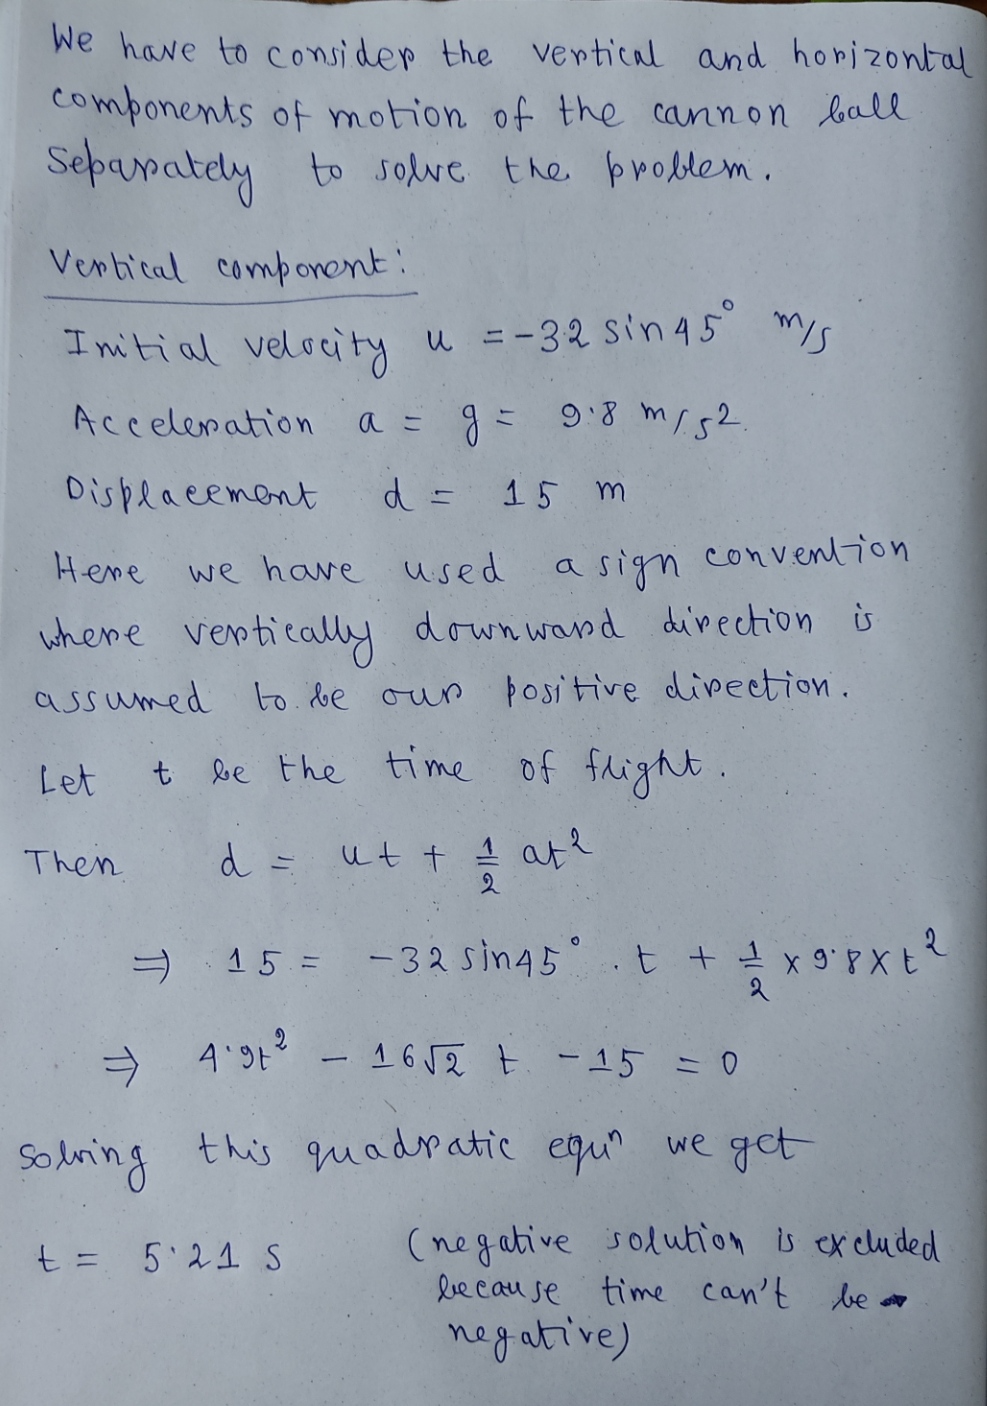 We have to consider the vertical and horizontal
components of motion of the cannon ball
Separately to solve the problem.
Vertical component:
Initial velocity u = -32 sin 45° m/s
Acceleration a = g = 9.8 m/s2.
Displacement d = 15 m
Here we have used a sign convention
where vertically downward direction is
assumed to be our positive direction.
Let t be the time of flight.
Then d = ut + 1/2 at²
⇒ 15 = -32 sin45° . t + 1/2 × 9.8 × t²
⇒ 4.9t² - 16√2 t - 15 = 0
Solving this quadratic equⁿ we get
t = 5.21 s (negative solution is excluded
because time can't be
negative)